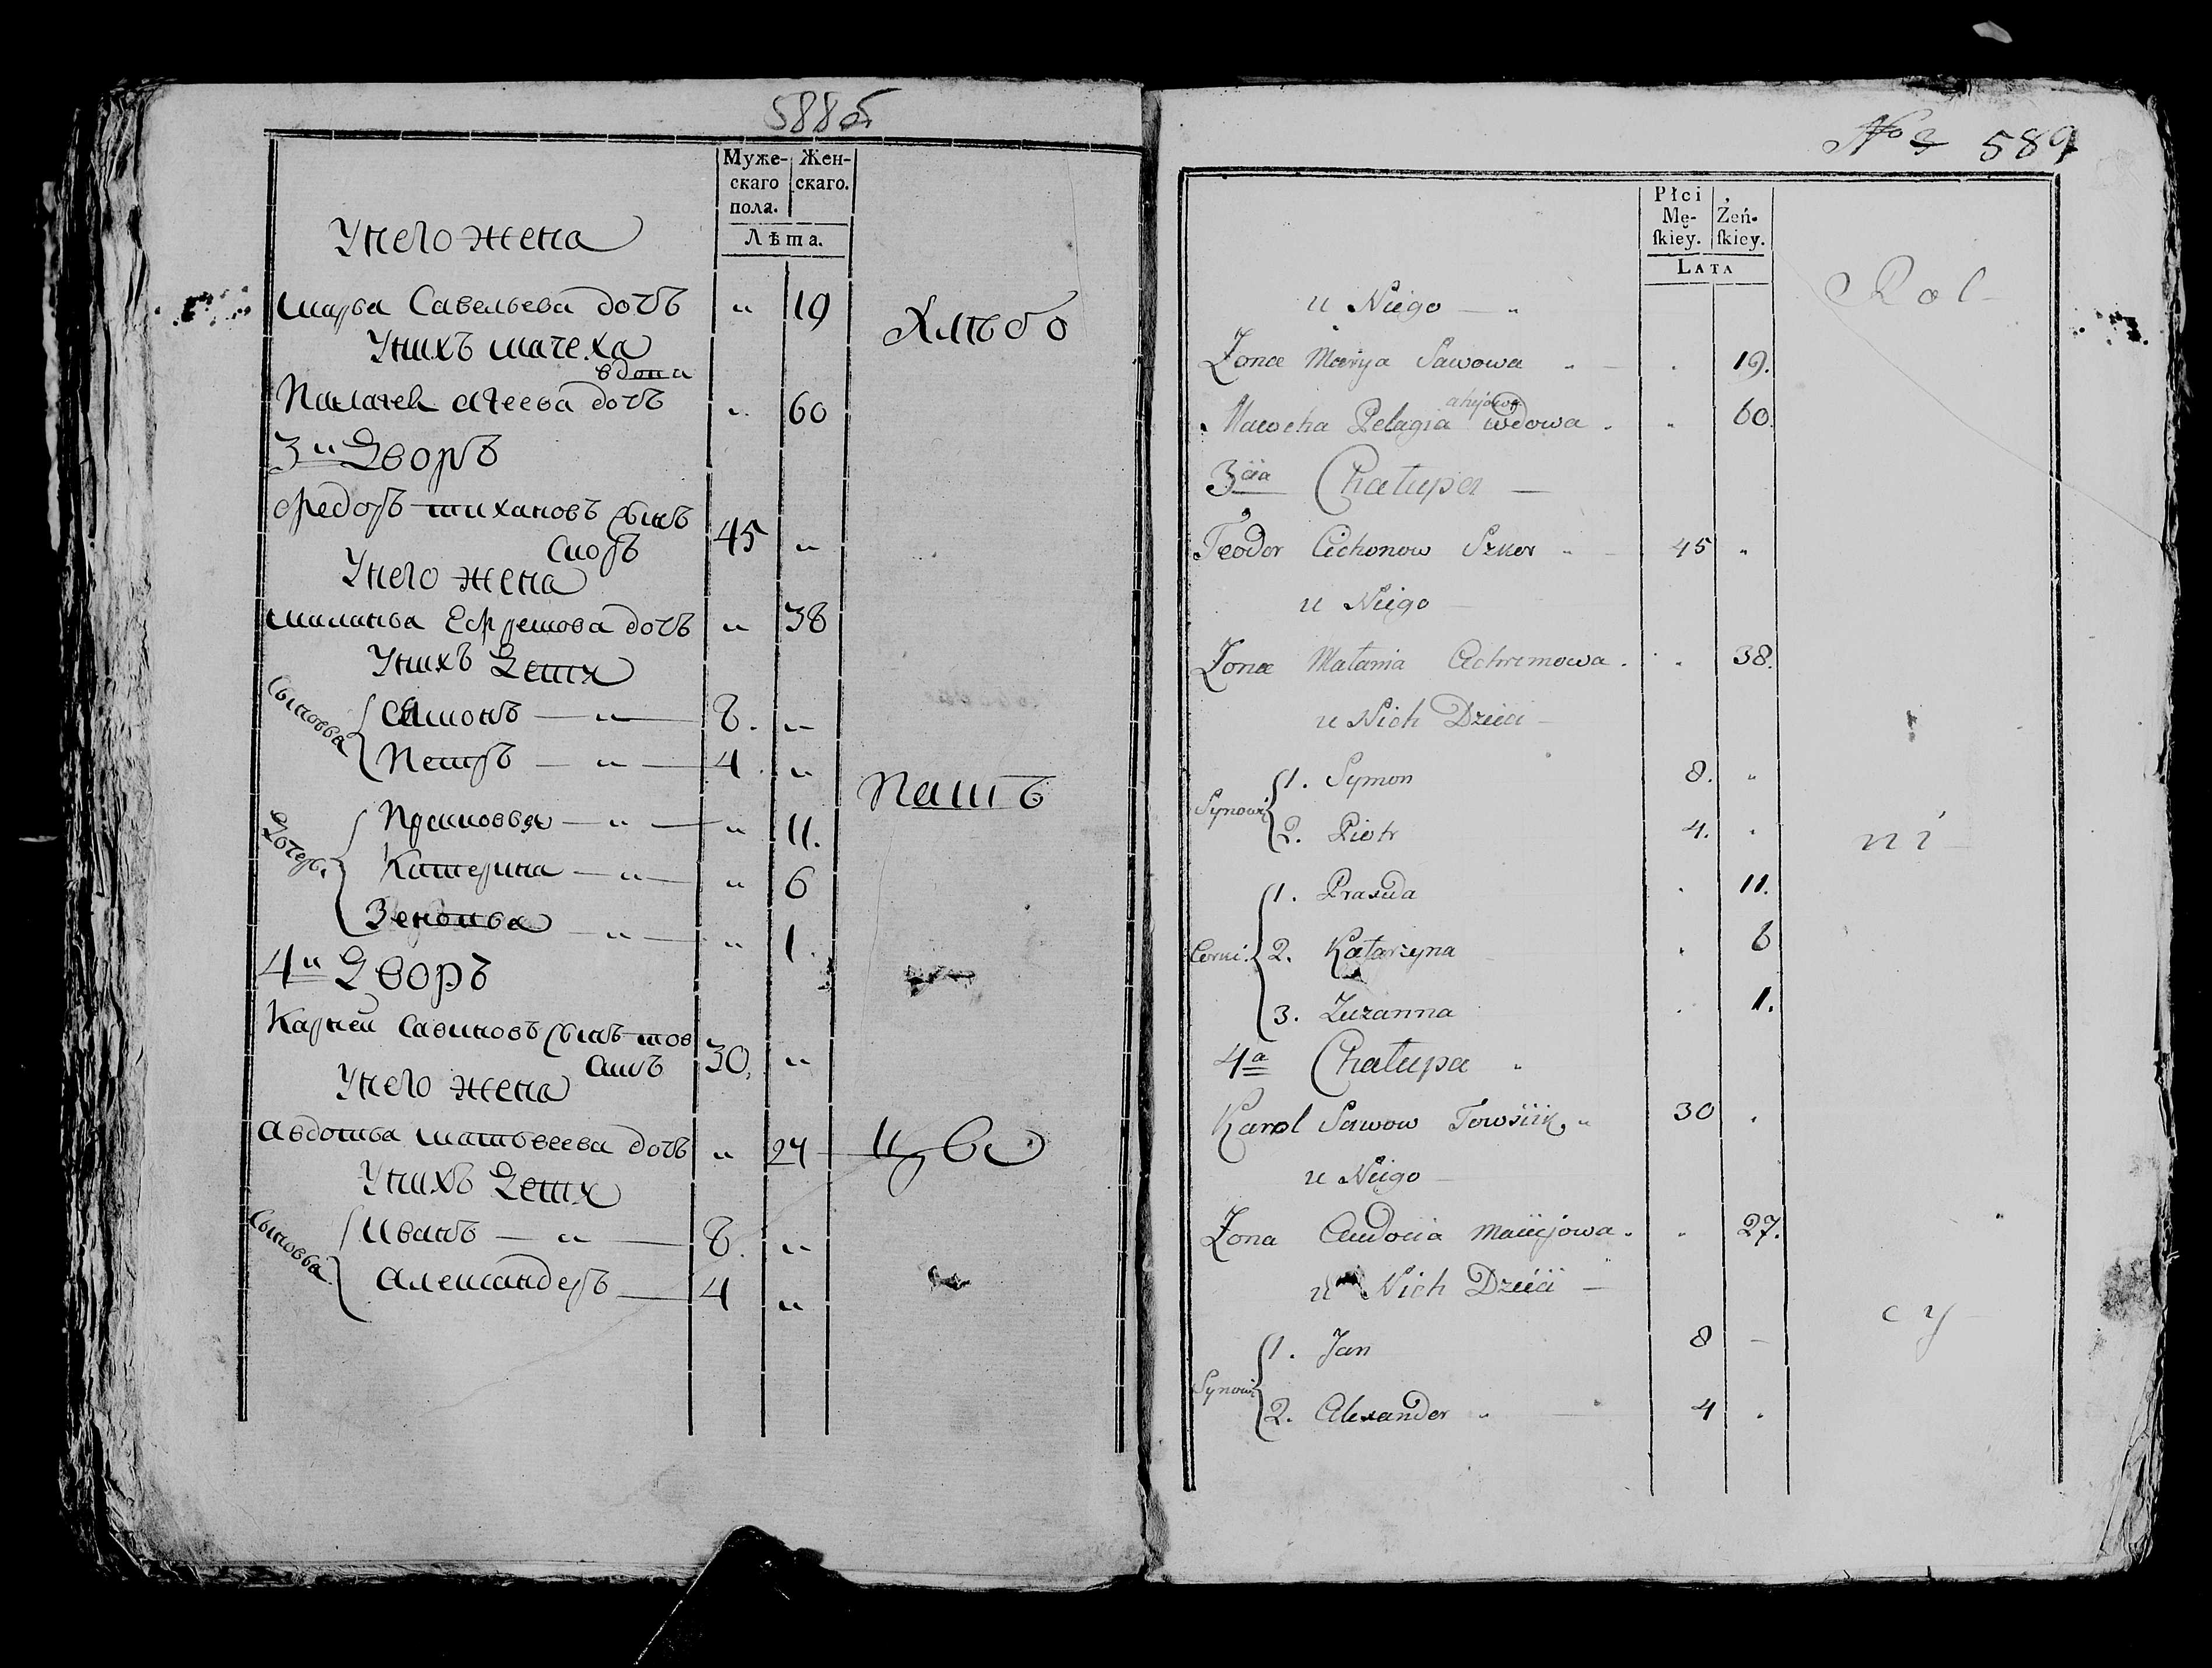 588б
Муже- Жен-
скаго скаго.
пола.
Лѣта.
Унего жена
марва Савельева дочъ " 19
Хлѣбо
Унихъ мачеха
вдова
Палагея Агеева дочъ " 60
3й Дворъ
Федоръ тихановъ сынъ
45 "
Унего жена
маланья Ефремова дочъ " 38
Унихъ Дети
Сыновья
Самонъ — " — 8. "
Петръ — " — 4. "
Пашъ
Дочерь.
Прасковья — " — " 11.
Катерина — " — " 6
— " — " 1.
4й Дворъ
Карней Савиновъ сынъ тов
30, "
Унего жена
Авдотья матвеева дочъ " 27
цы
Унихъ Дети
Сыновья
Иванъ — " — 8. "
Александеръ — 4 "
No 3 589
Płci
Mę- Żeń-
ſkiey. ſkiey.
LATA
Rol-
u Niego — "
Zona Maryja Sawowa " — . 19.
Macocha Pelagia wdowa . " 60.
3cia Chatupa —
Teodor Cichonow Szker " — 45 "
u Niego —
Zona Matania Achremowa . " 38.
u Nich Dzieci —
Synowi
1. Symon 8. "
2. Piotr 4. "
ni-
Corki.
1. Praxida . 11.
2. Katarzyna . 6
3. Zuzanna . 1.
4a Chatupa "
Karol Sawow Towsiik, " 30 .
u Niego —
Zona Audocia Maciejowa . " 27.
u Nich Dzieci —
cy-
Synowi
1. Jan 8 —
2. Alexander " — 4 .